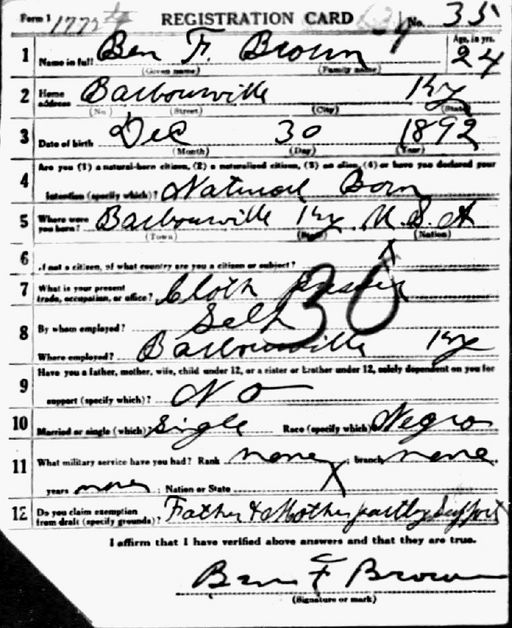 Form 1 1775 REGISTRATION CARD No. 35
1 Name in full Ben F. Brown Age, in yrs. 24
(Given name) (Family name)
2 Home address Barbourville Ky
(No.) (Street) (City) (State)
3 Date of birth Dec 30 1892
(Month) (Day) (Year)
4 Are you (1) a natural-born citizen, (2) a naturalized citizen, (3) an alien, (4) or have you declared your
intention (specify which)? Natural Born
5 Where were you born? Barbourville Ky U.S.A
(Town) (State) (Nation)
6 If not a citizen, of what country are you a citizen or subject?
7 What is your present trade, occupation, or office? Cloth
30
8 By whom employed? Self
Where employed? Barbourville Ky
9 Have you a father, mother, wife, child under 12, or a sister or brother under 12, solely dependent on you for
support (specify which)? No
10 Married or single (which)? Single Race (specify which)? Negro
11 What military service have you had? Rank none ; branch none
years none ; Nation or State
12 Do you claim exemption from draft (specify grounds)? Father & Mother partly support
I affirm that I have verified above answers and that they are true.
Ben F Brown
(Signature or mark)